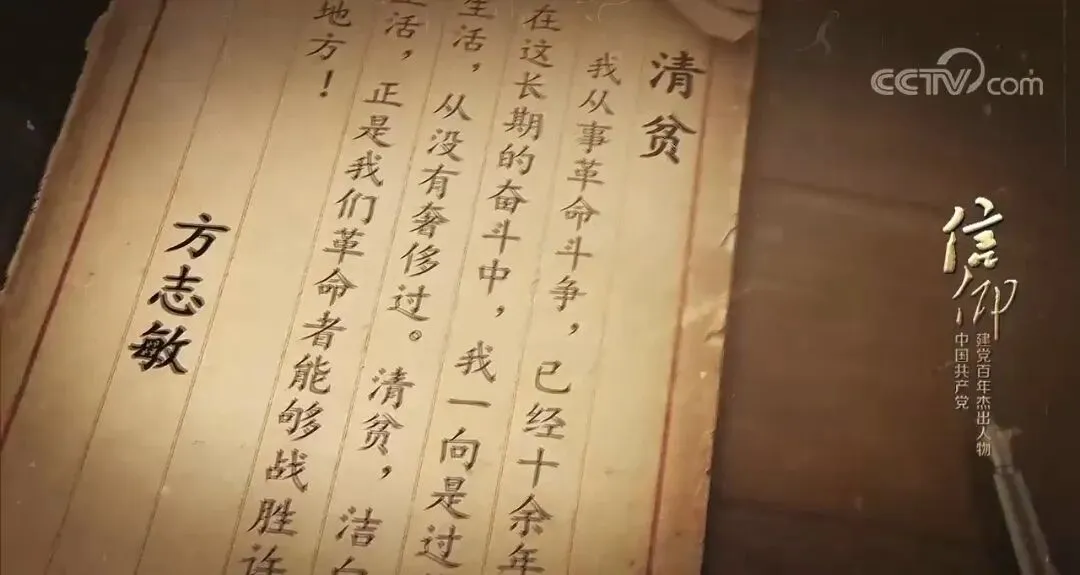 清贫
我从事革命斗争，已经十余年
在这长期的奋斗中，我一向是过
生活，从没有奢侈过。清贫，洁白
活，正是我们革命者能够战胜许
地方！
方志敏
CCTV.com
信仰
建党百年杰出人物
中国共产党